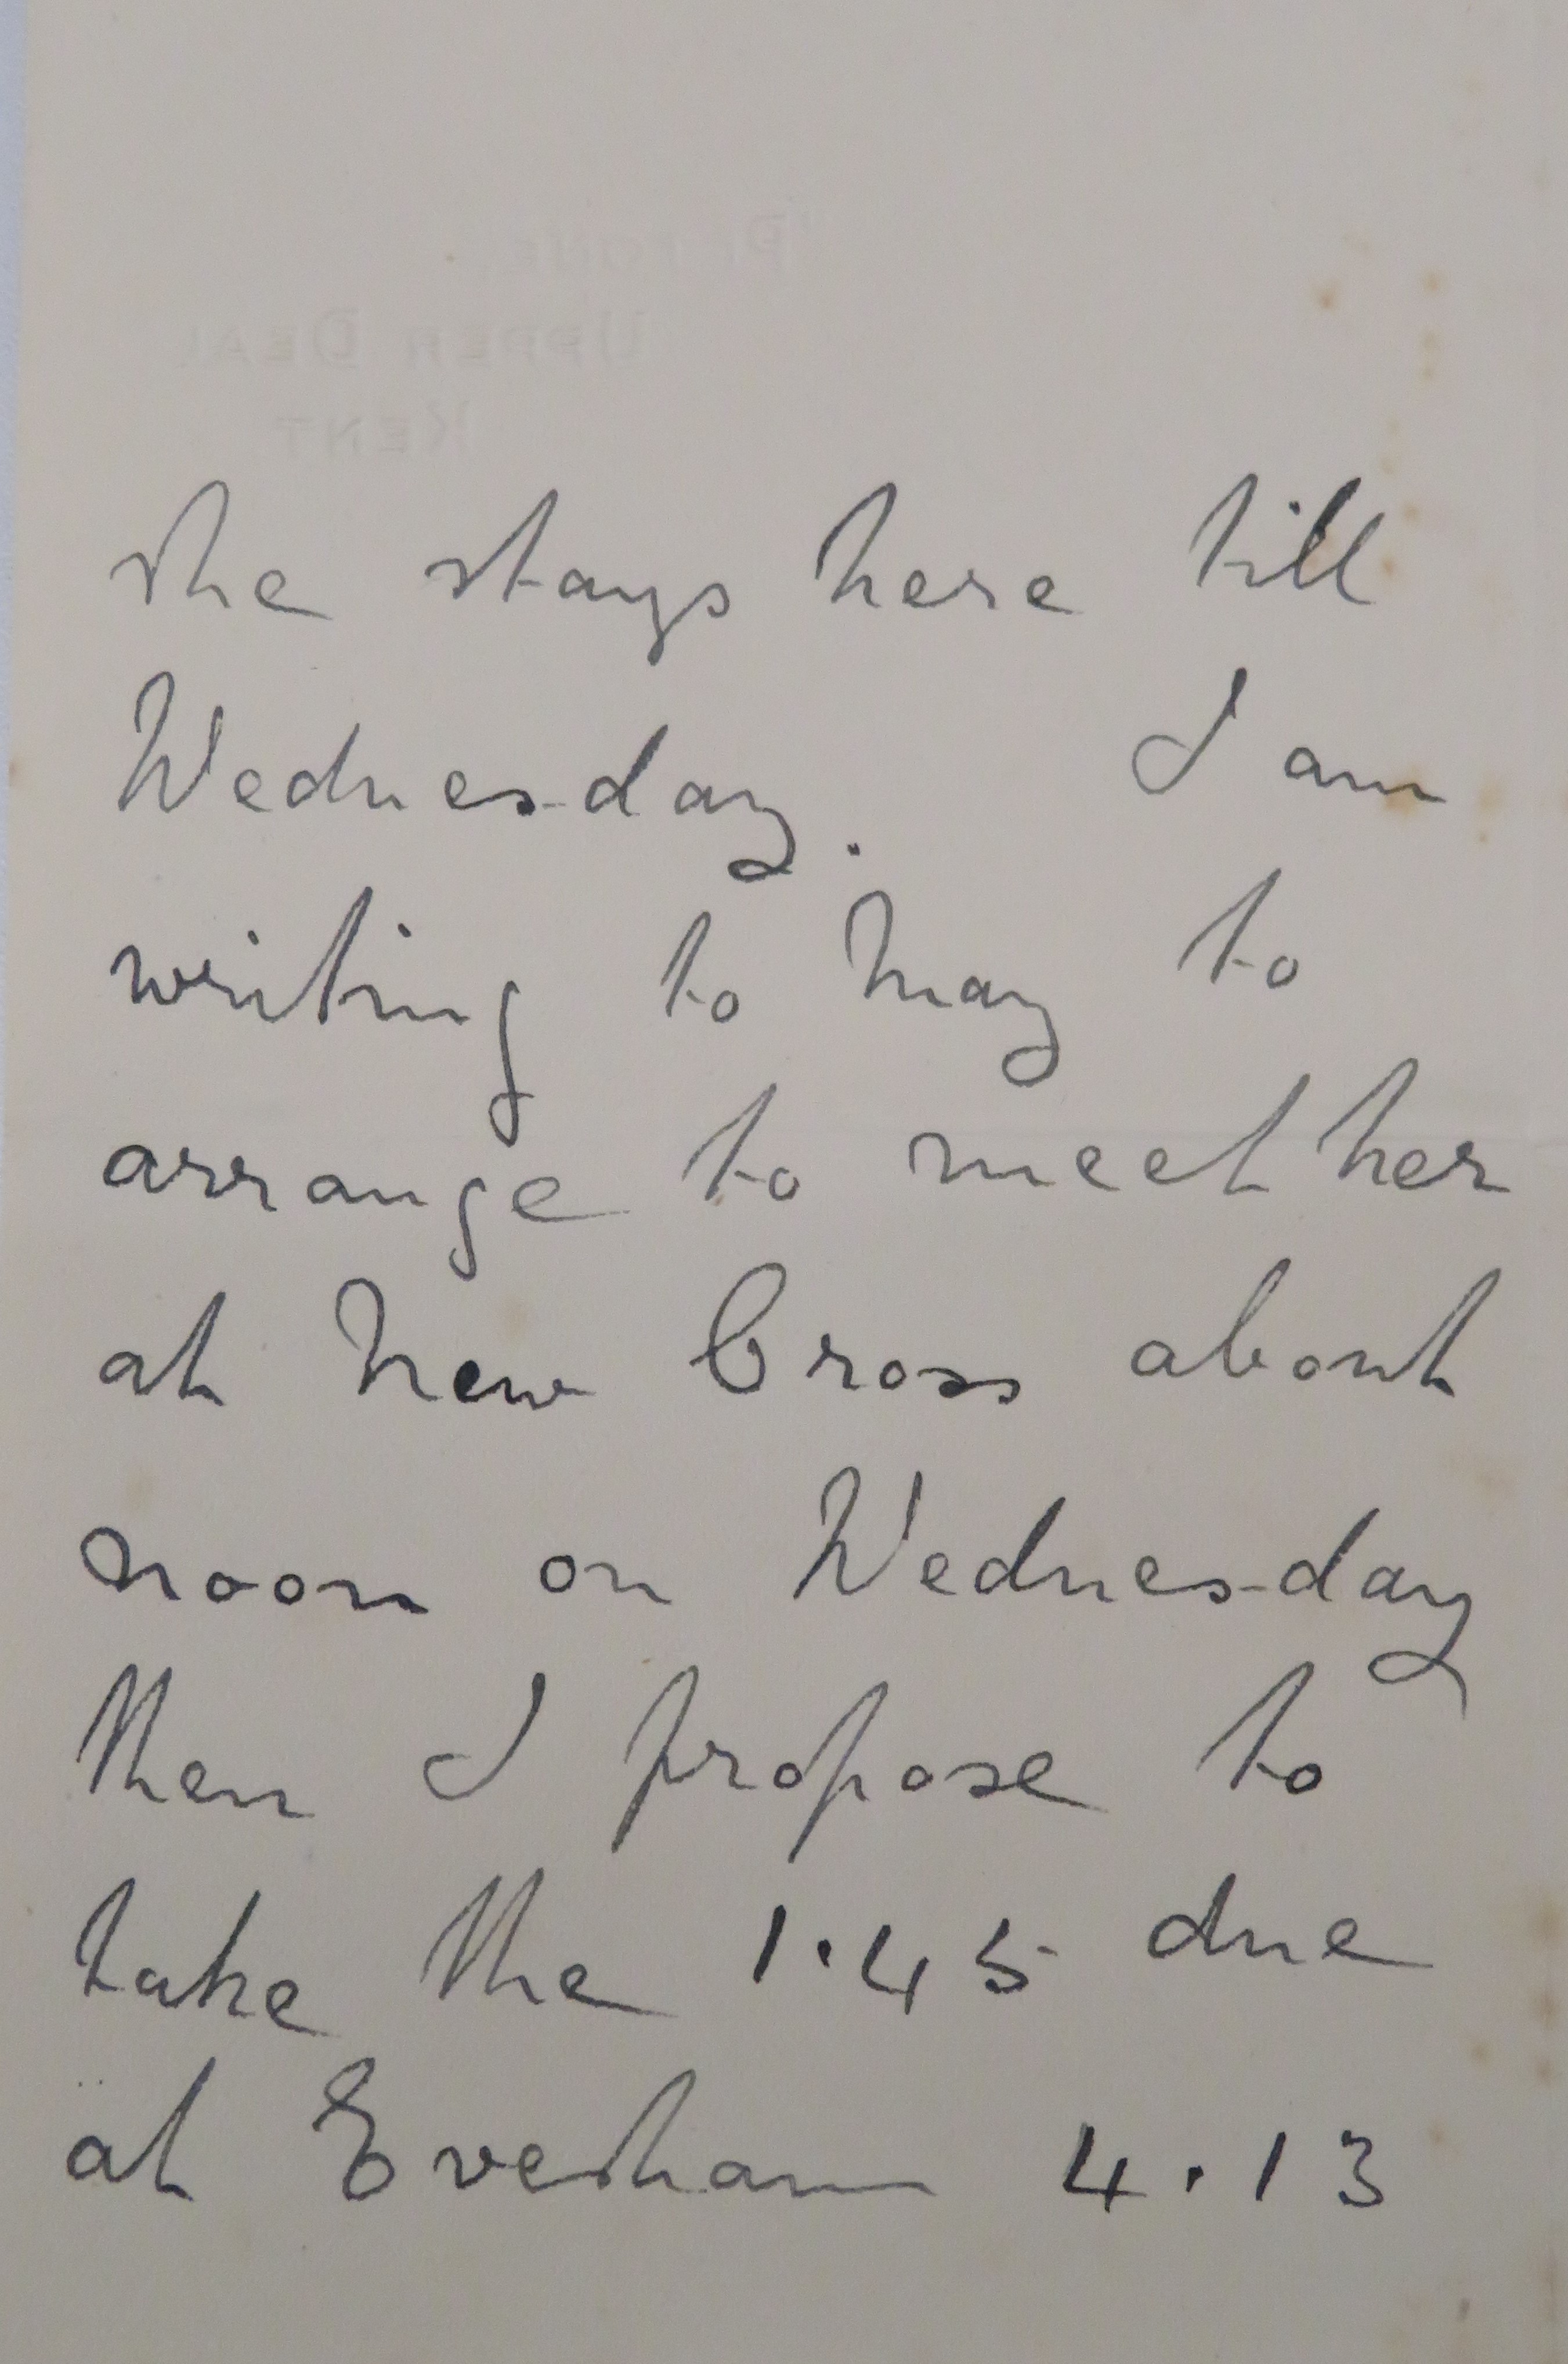 UPPER DEAL
KENT
she stays here till
Wednesday. I am
writing to May to
arrange to meet her
at New Cross about
noon on Wednesday
then I propose to
take the 1.45 due
at Evesham 4.13